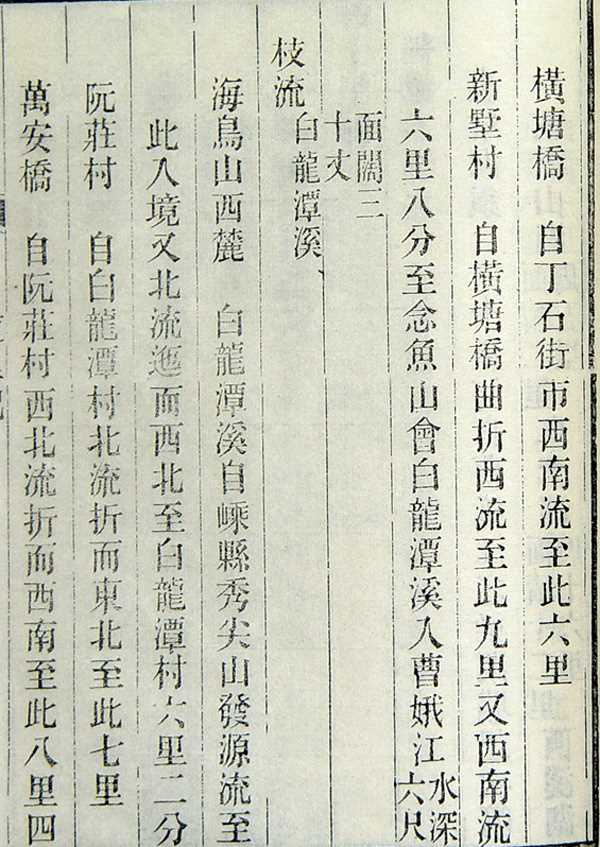 橫塘橋　自丁石街市西南流至此六里
新墅村　自橫塘橋曲折西流至此九里又西南流
六里八分至念魚山會白龍潭溪入曹娥江水深六尺
面闊三十丈
枝流　白龍潭溪
海鳥山西麓　白龍潭溪自嵊縣秀尖山發源流至
此入境又北流迤而西北至白龍潭村六里二分
阮莊村　自白龍潭村北流折而東北至此七里
萬安橋　自阮莊村西北流折而西南至此八里四